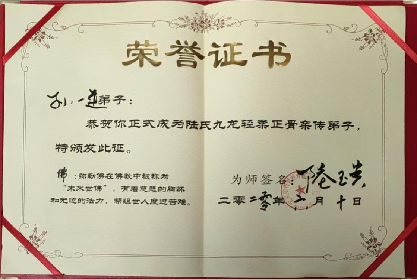 荣誉证书
孙一莲弟子：
恭贺你正式成为陆氏九龙轻柔正骨亲传弟子，
特颁发此证。
佛：弥勒佛在佛教中被称为
"未来世佛"，有着慈悲的胸怀
和无边的法力，帮组世人度过苦难。
为师签名：陆玉贵
二零二零年 月十日